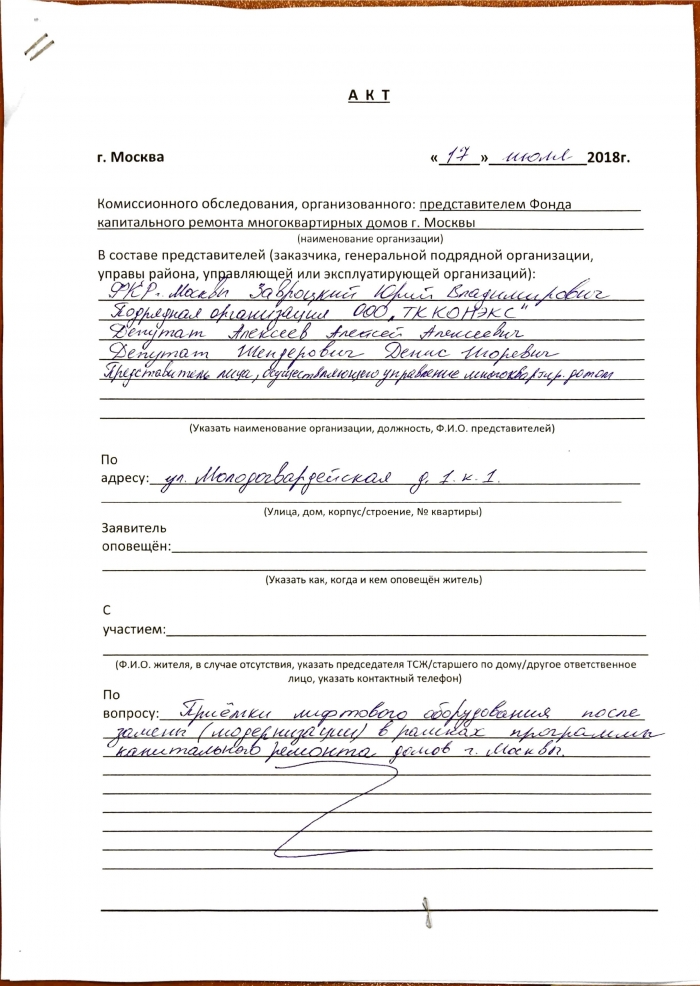 А К Т
г. Москва «17» июля 2018г.
Комиссионного обследования, организованного: представителем Фонда
капитального ремонта многоквартирных домов г. Москвы
(наименование организации)
В составе представителей (заказчика, генеральной подрядной организации,
управы района, управляющей или эксплуатирующей организаций):
ФКР г. Москвы Завроцкий Юрий Владимирович
Подрядная организация ООО "ТК КОНЭКС"
Депутат Алексеев Алексей Алексеевич
Депутат Шендерович Денис Игоревич
Представитель лица, осуществляющего управление многокварт.р. домом
(Указать наименование организации, должность, Ф.И.О. представителей)
По
адресу: ул. Молодогвардейская д. 1. к. 1.
(Улица, дом, корпус/строение, № квартиры)
Заявитель
оповещён:
(Указать как, когда и кем оповещён житель)
С
участием:
(Ф.И.О. жителя, в случае отсутствия, указать председателя ТСЖ/старшего по дому/другое ответственное
лицо, указать контактный телефон)
По
вопросу: Приёмки лифтового оборудования после
замены (модернизации) в рамках программы
капитального ремонта домов г. Москвы.